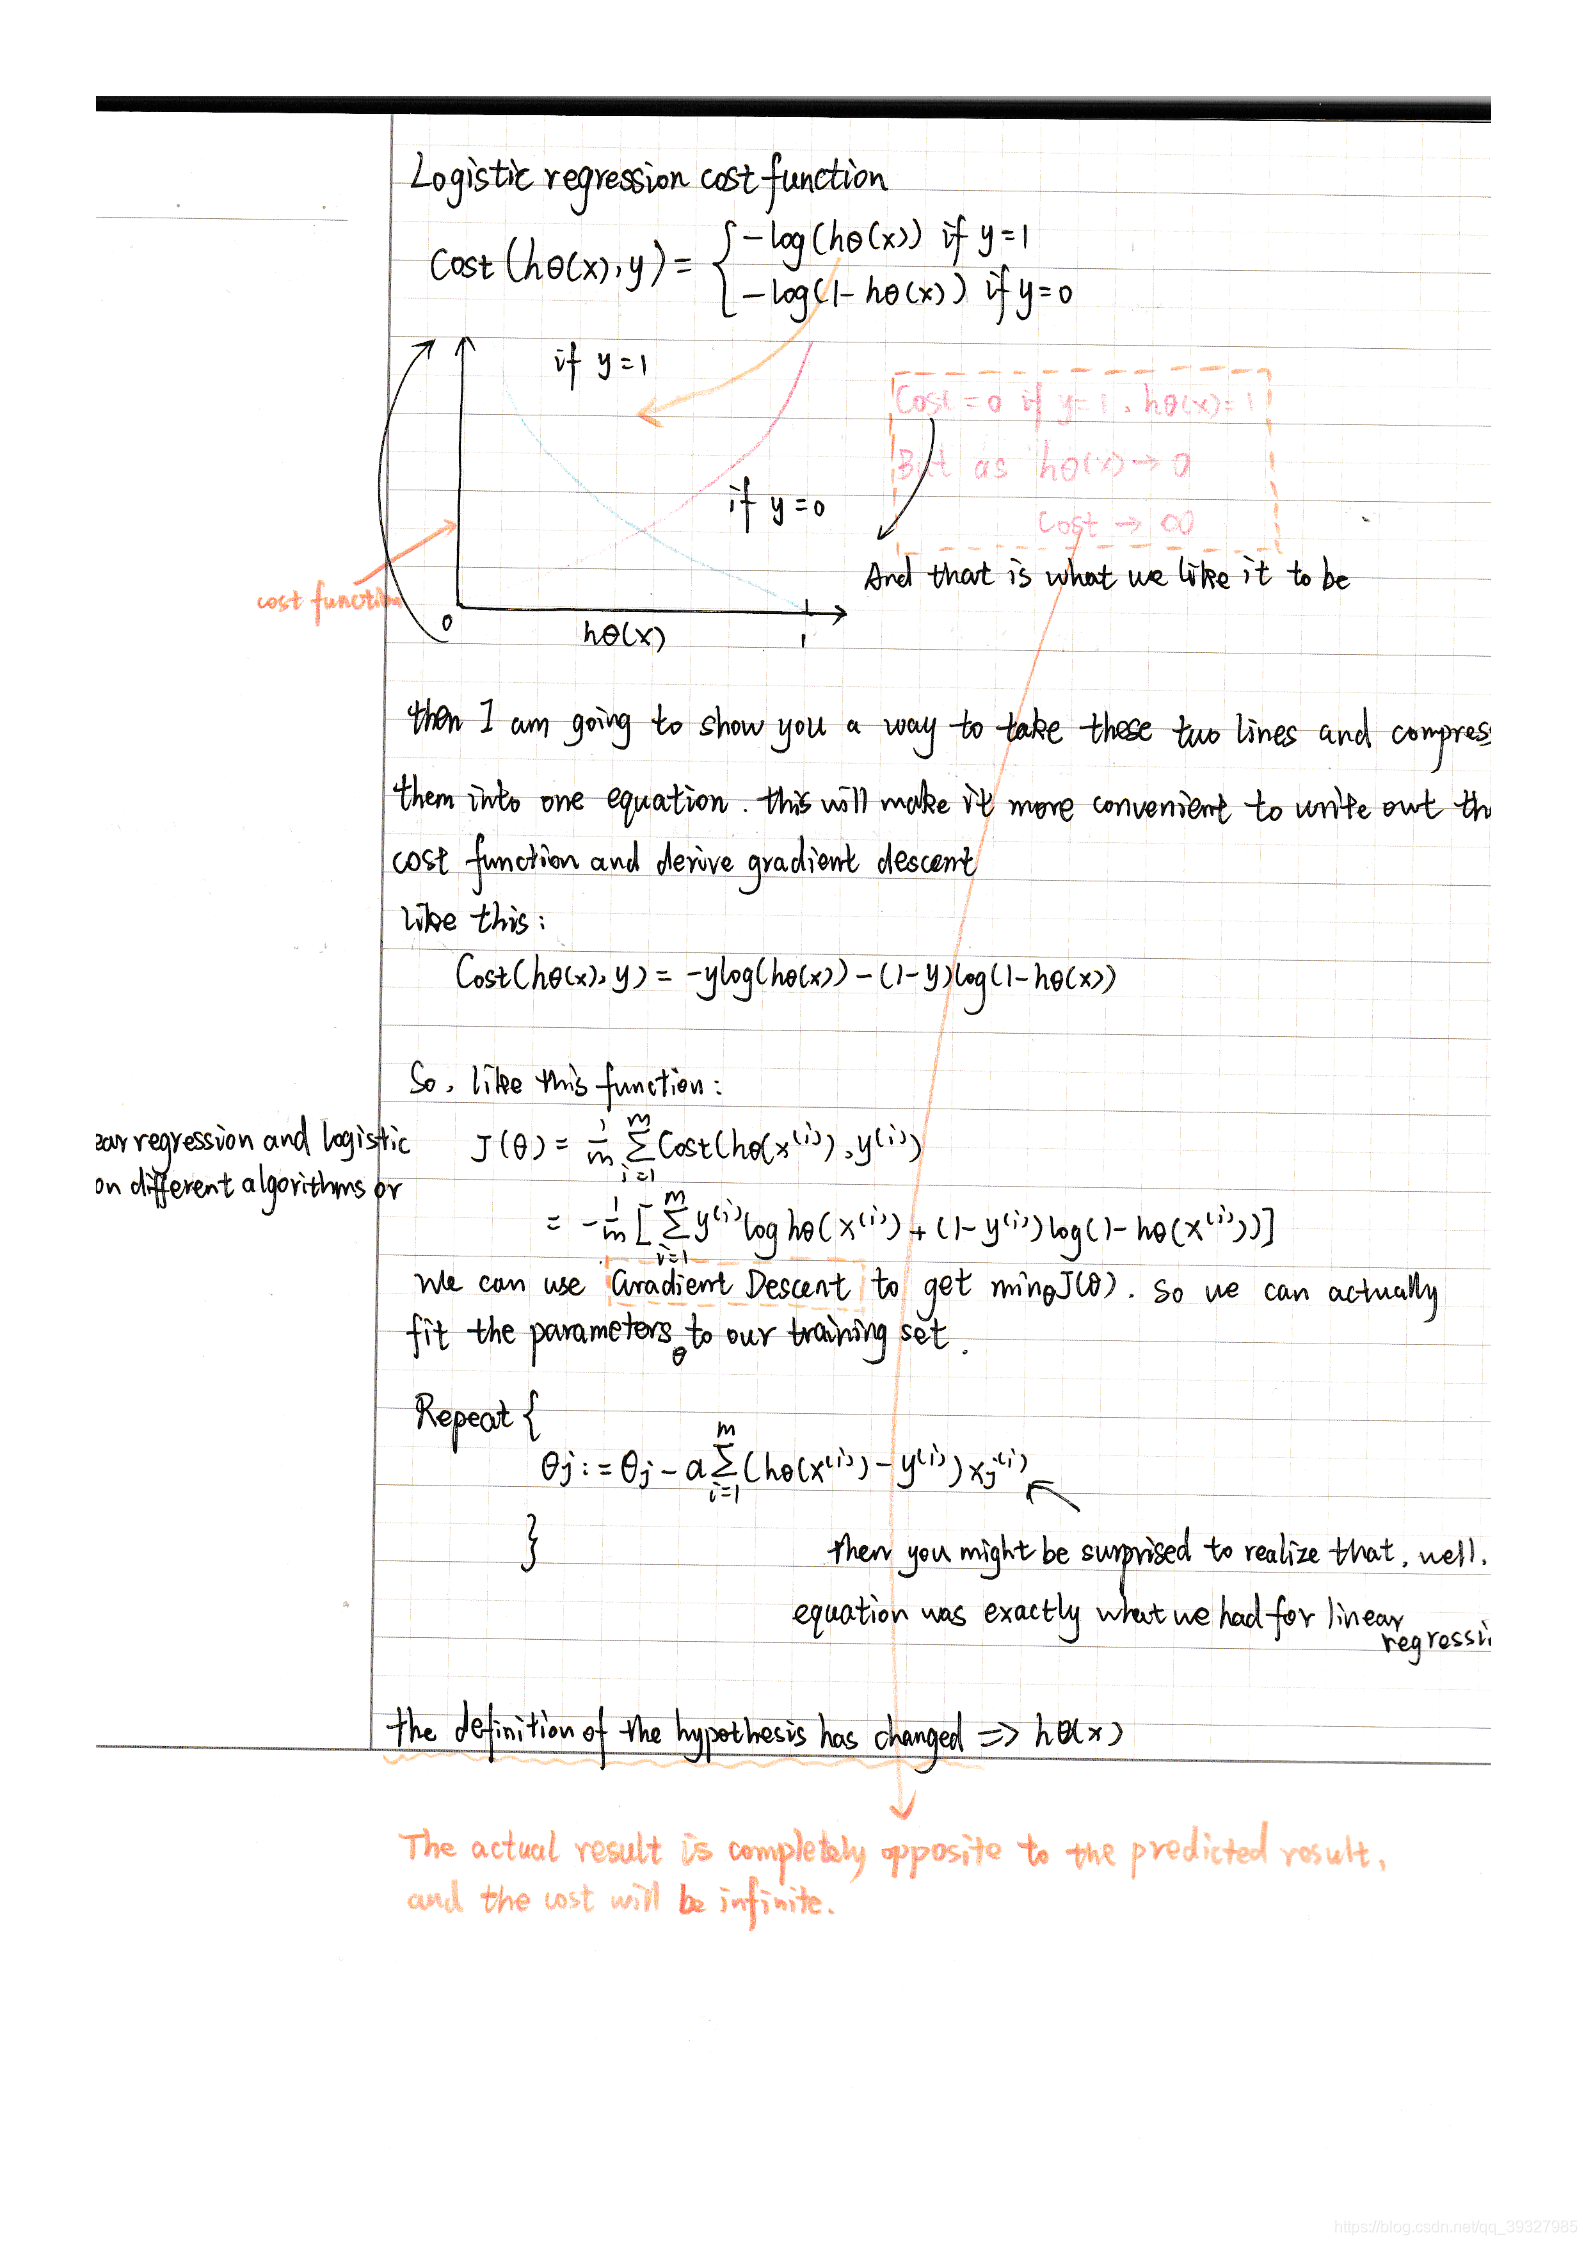 Logistic regression cost function
Cost(hθ(x),y) = { -log(hθ(x)) if y=1
-log(1-hθ(x)) if y=0
if y=1
Cost=0 if y=1, hθ(x)=1
But as hθ(x)→0
Cost → ∞
if y=0
And that is what we like it to be
cost function
0
hθ(x)
1
then I am going to show you a way to take these two lines and compress
them into one equation. this will make it more convenient to write out th
cost function and derive gradient descent
like this:
Cost(hθ(x),y) = -ylog(hθ(x)) - (1-y)log(1-hθ(x))
So, like this function:
ear regression and logistic
on different algorithms or
J(θ) = 1/m Σ_{i=1}^{m} Cost(hθ(x^(i)), y^(i))
= -1/m [Σ_{i=1}^{m} y^(i) log hθ(x^(i)) + (1-y^(i)) log(1-hθ(x^(i)))]
We can use Gradient Descent to get minθJ(θ). So we can actually
fit the parameters θ to our training set.
Repeat {
θj := θj - α Σ_{i=1}^{m} (hθ(x^(i)) - y^(i)) xj^(i)
}
then you might be surprised to realize that, well.
equation was exactly what we had for linear
regressi
the definition of the hypothesis has changed => hθ(x)
The actual result is completely opposite to the predicted result,
and the cost will be infinite.
https://blog.csdn.net/qq_39327985